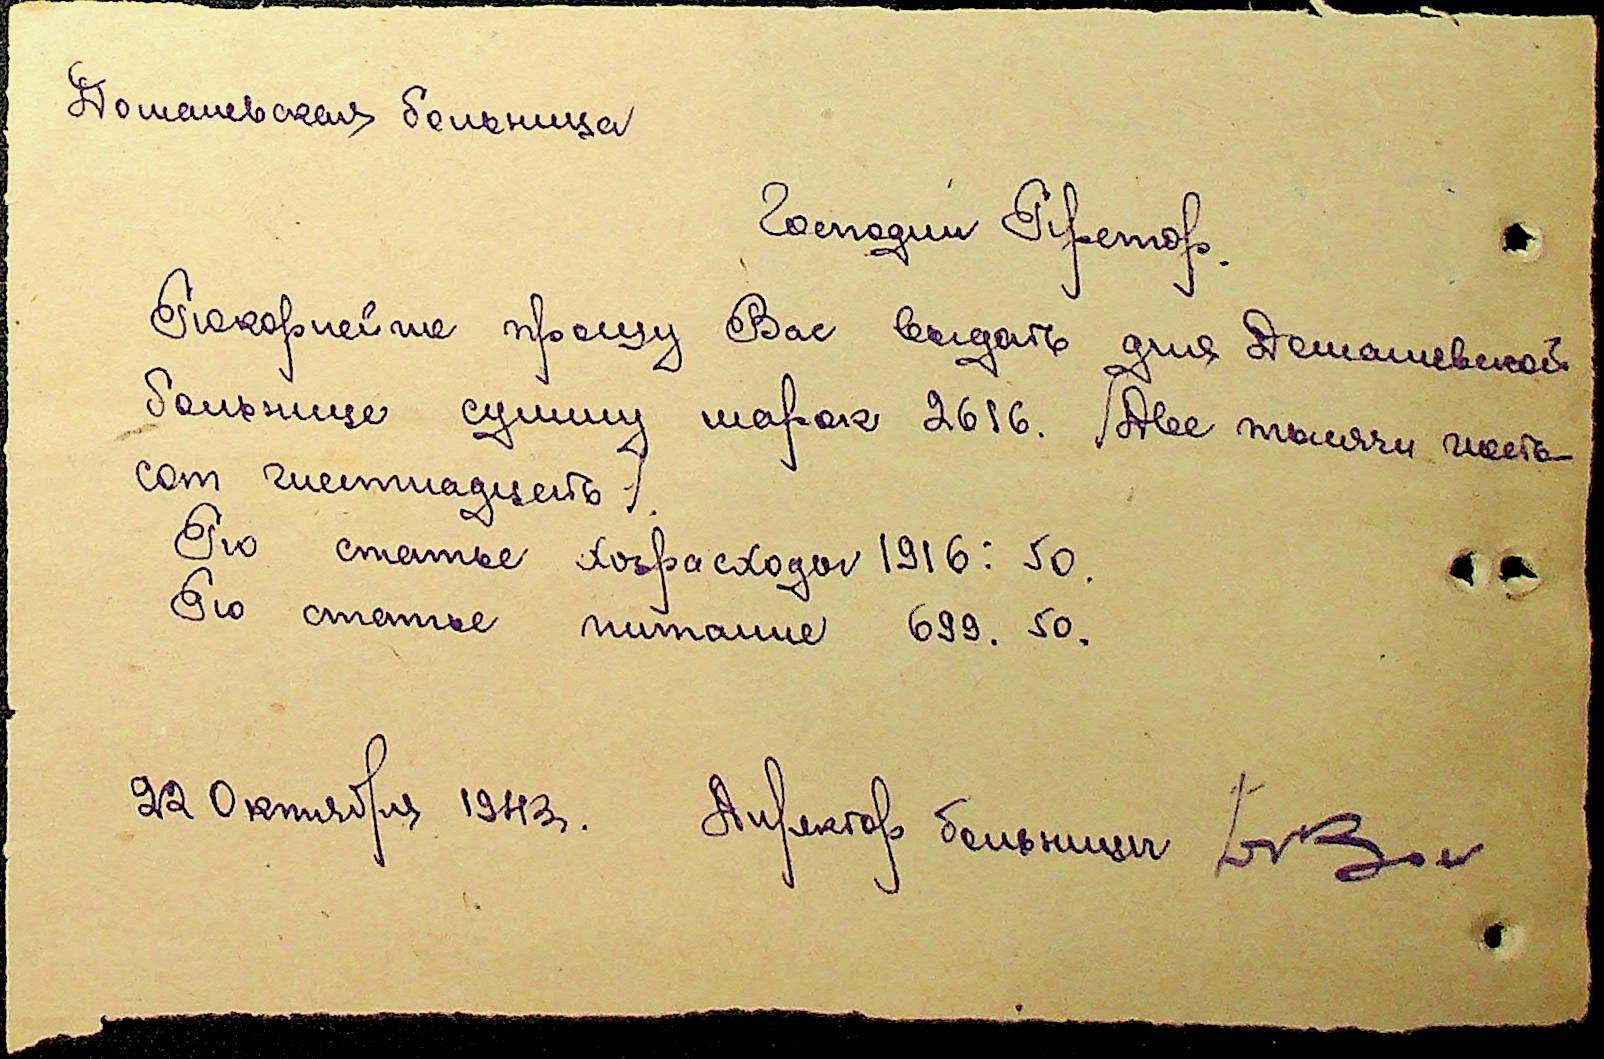 Доманевская больница
Господин Претор.
Покорнейше прошу Вас выдать для Доманевской
больнице сумму марок 2616. /Две тысячи шесть
сот шестнадцеть/.
По статье хозрасходы 1916: 50.
По статье питание 699. 50.
22 Октября 1943г. Директор больницы